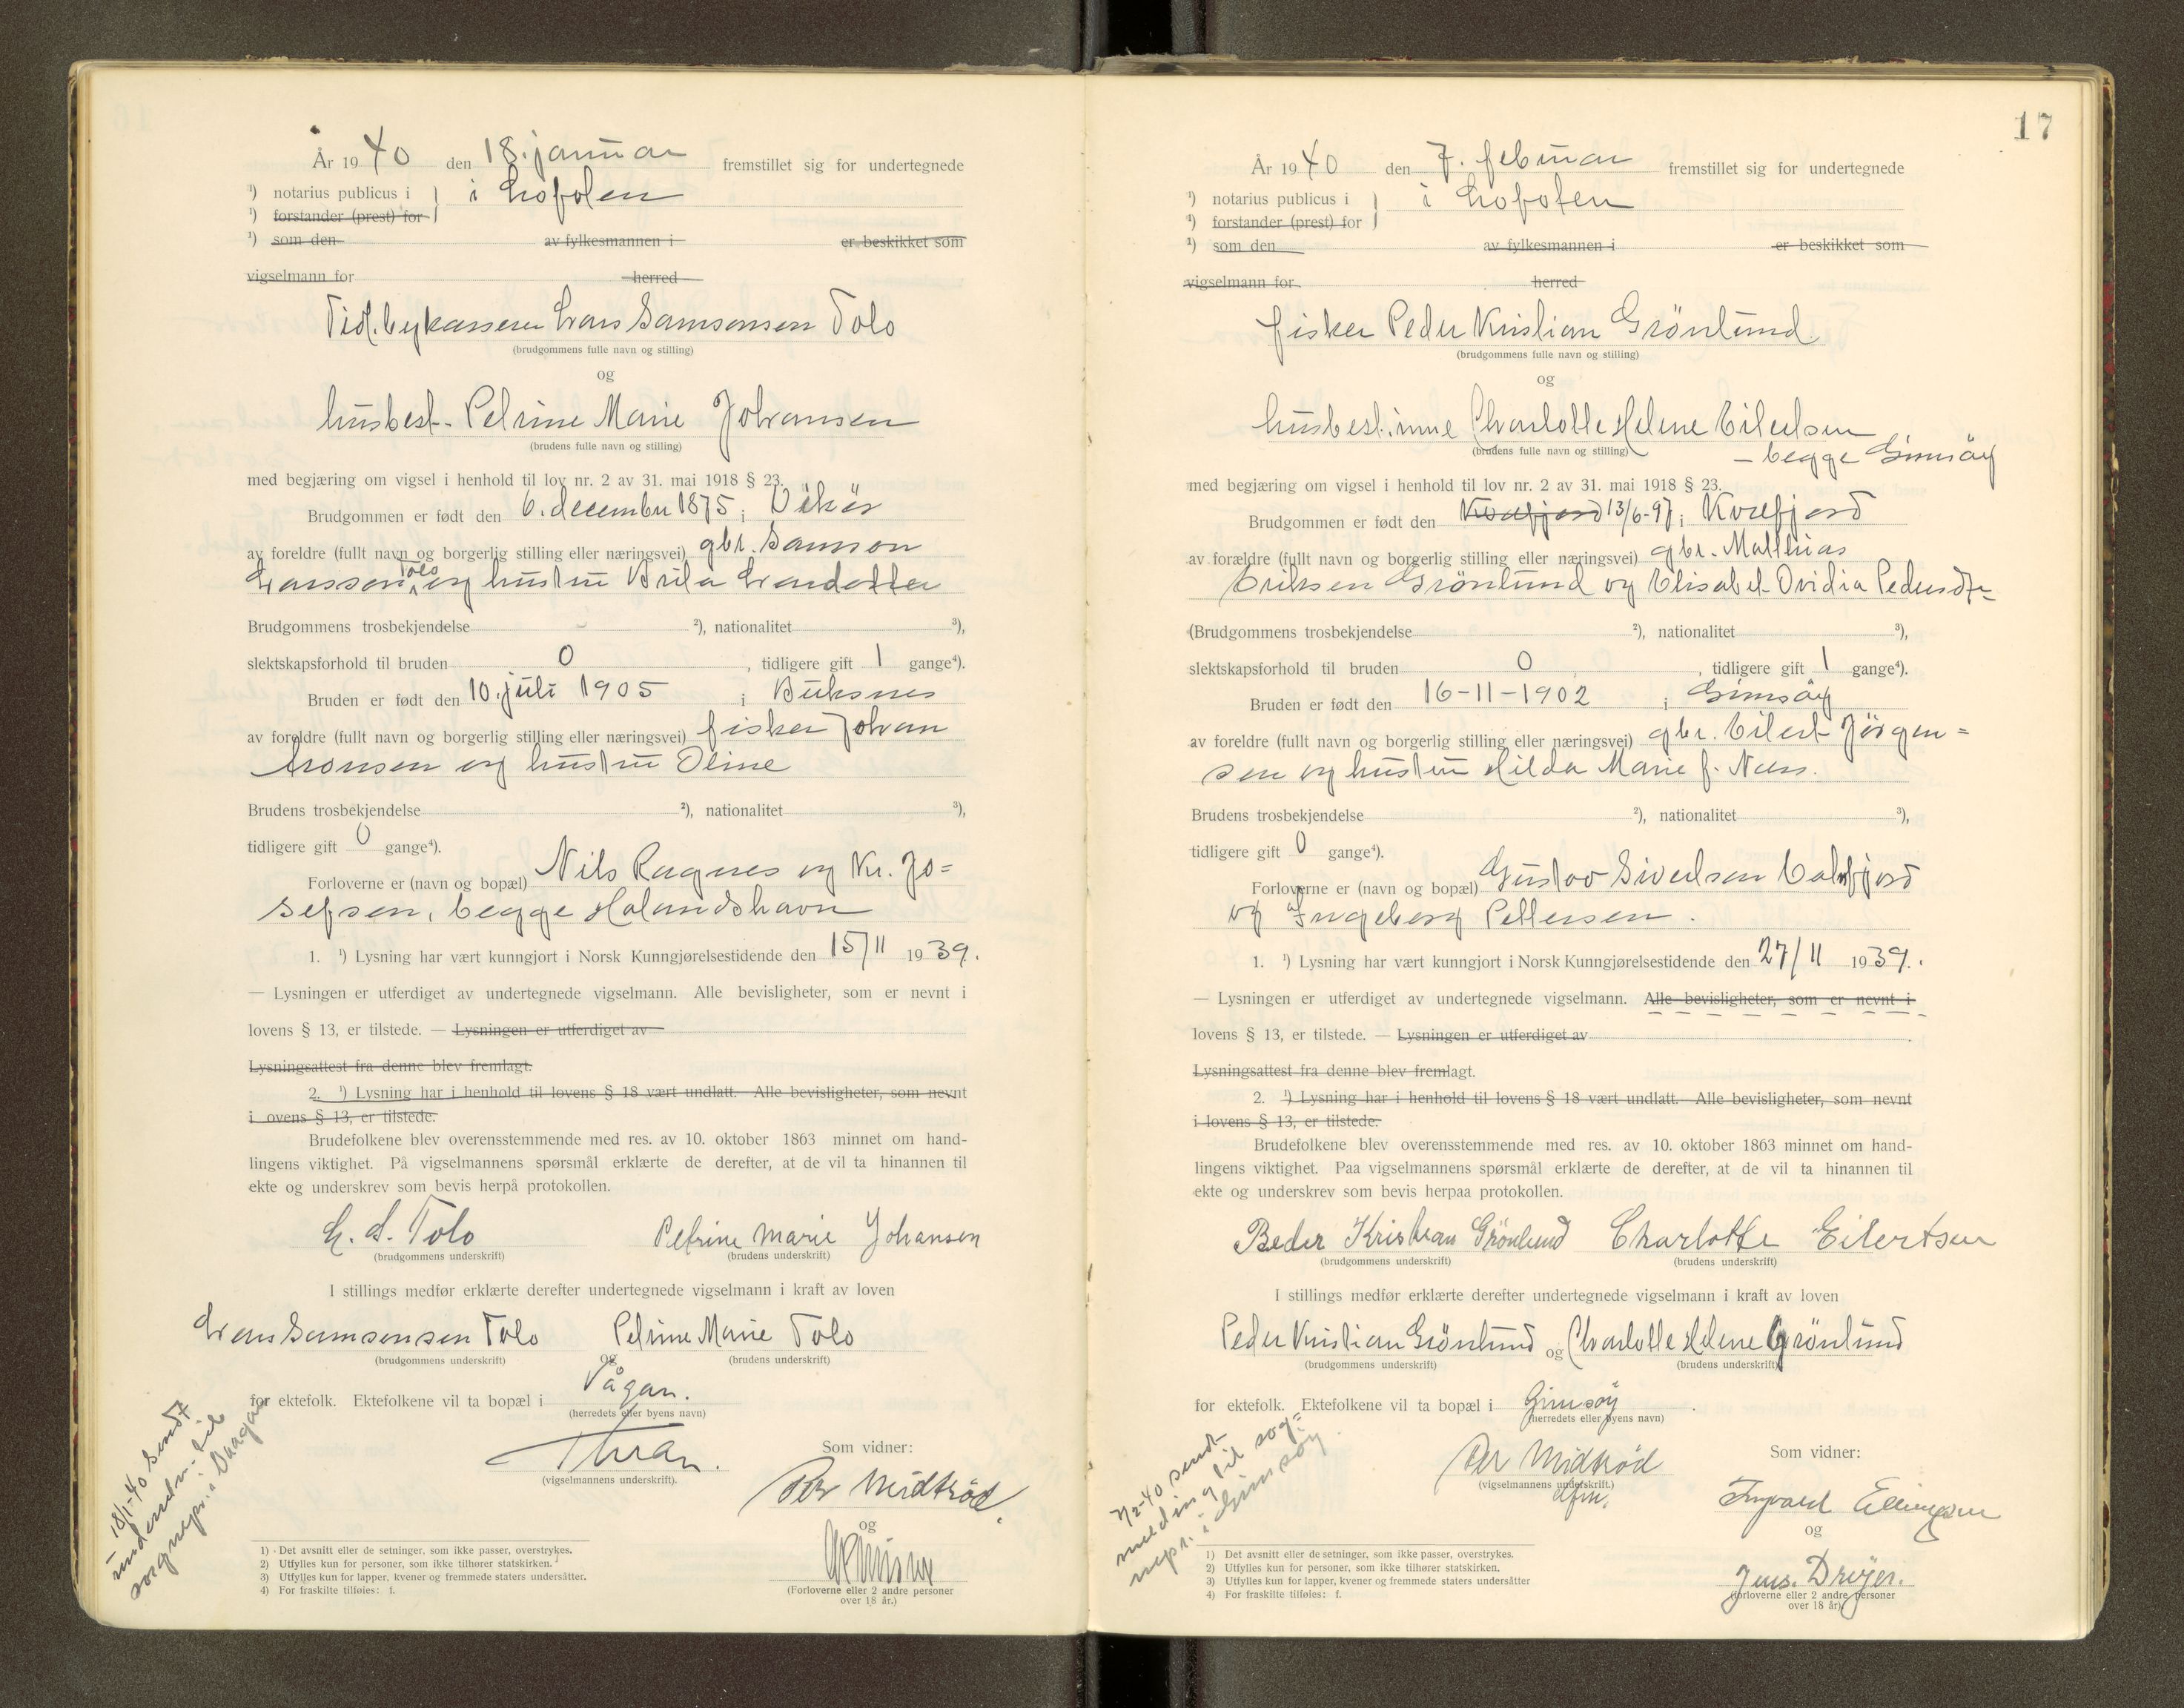 År 1940 den 18. januar fremstillet sig for undertegnede
¹) notarius publicus i } i Lofoten
¹) forstander (prest) for
¹) som den av fylkesmannen i er beskikket som
vigselmann for herred
Tid. bykasserer Lars Samsonsen Tolo
(brudgommens fulle navn og stilling)
og
husbest. Petrine Marie Johansen
(brudens fulle navn og stilling)
med begjæring om vigsel i henhold til lov nr. 2 av 31. mai 1918 § 23.
Brudgommen er født den 6. december 1875 i Vikör
av foreldre (fullt navn og borgerlig stilling eller næringsvei) gbr. Samson
Larsson Tolo og hustru Brita Larsdatter
Brudgommens trosbekjendelse ²), nationalitet ³),
slektskapsforhold til bruden 0, tidligere gift 1 gange⁴).
Bruden er født den 10. juli 1905 i Buksnes
av foreldre (fullt navn og borgerlig stilling eller næringsvei) fisker Johan
Aronsen og hustru Oline
Brudens trosbekjendelse ²), nationalitet ³),
tidligere gift 0 gange⁴).
Forloverne er (navn og bopæl) Nils Ragnes og Kr. Jo=
sefsen, begge Hølandshavn
1. ¹) Lysning har vært kunngjort i Norsk Kunngjørelsestidende den 15/11 1939.
— Lysningen er utferdiget av undertegnede vigselmann. Alle bevisligheter, som er nevnt i
lovens § 13, er tilstede. — Lysningen er utferdiget av
Lysningsattest fra denne blev fremlagt.
2. ¹) Lysning har i henhold til lovens § 18 vært undlatt. Alle bevisligheter, som nevnt
i ovens § 13, er tilstede.
Brudefolkene blev overensstemmende med res. av 10. oktober 1863 minnet om hand-
lingens viktighet. På vigselmannens spørsmål erklærte de derefter, at de vil ta hinannen til
ekte og underskrev som bevis herpå protokollen.
L. S. Tolo Petrine Marie Johansen
(brudgommens underskrift) (brudens underskrift)
I stillings medfør erklærte derefter undertegnede vigselmann i kraft av loven
Lars Samsonsen Tolo Petrine Marie Tolo
(brudgommens underskrift) og (brudens underskrift)
for ektefolk. Ektefolkene vil ta bopæl i Vågan.
(herredets eller byens navn)
Som vidner:
(vigselmannens underskrift).
Per Midtröd.
og
(Forloverne eller 2 andre personer
over 18 år.)
18/1-40 sendt
underretn. til
sognepr. i Vaagan
1) Det avsnitt eller de setninger, som ikke passer, overstrykes.
2) Utfylles kun for personer, som ikke tilhører statskirken.
3) Utfylles kun for lapper, kvener og fremmede staters undersåtter.
4) For fraskilte tilføies: f.
17
År 1940 den 7. februar fremstillet sig for undertegnede
¹) notarius publicus i } i Lofoten
¹) forstander (prest) for
¹) som den av fylkesmannen i er beskikket som
vigselmann for herred
fisker Peder Kristian Grönlund
(brudgommens fulle navn og stilling)
og
husbest.inne Charlotte Helene Eilertsen
(brudens fulle navn og stilling)
- begge Gimsöy
med begjæring om vigsel i henhold til lov nr. 2 av 31. mai 1918 § 23.
Brudgommen er født den Kvæfjord 13/6-97 i Kvæfjord
av forældre (fullt navn og borgerlig stilling eller næringsvei) gbr. Matthias
Eriksen Grönlund og Elisabet Ovidia Pedersdtr
(Brudgommens trosbekjendelse ²), nationalitet ³),
slektskapsforhold til bruden 0, tidligere gift 1 gange⁴).
Bruden er født den 16-11-1902 i Gimsöy
av foreldre (fullt navn og borgerlig stilling eller næringsvei) gbr. Eilert Jörgen=
sen og hustru Hilda Marie f. Næss.
Brudens trosbekjendelse ²), nationalitet ³),
tidligere gift 0 gange⁴).
Forloverne er (navn og bopæl) Gustav Sivertsen Kalsfjord
og Ingeborg Pettersen.
1. ¹) Lysning har vært kunngjort i Norsk Kunngjørelsestidende den 27/11 1939.
— Lysningen er utferdiget av undertegnede vigselmann. Alle bevisligheter, som er nevnt i
lovens § 13, er tilstede. — Lysningen er utferdiget av
Lysningsattest fra denne blev fremlagt.
2. ¹) Lysning har i henhold til lovens § 18 vært undlatt. Alle bevisligheter, som nevnt
i lovens § 13, er tilstede.
Brudefolkene blev overensstemmende med res. av 10. oktober 1863 minnet om hand-
lingens viktighet. Paa vigselmannens spørsmål erklærte de derefter, at de vil ta hinannen til
ekte og underskrev som bevis herpaa protokollen.
Peder Kristian Grönlund Charlotte Eilertsen
(brudgommens underskrift) (brudens underskrift)
I stillings medfør erklærte derefter undertegnede vigselmann i kraft av loven
Peder Kristian Grönlund og Charlotte Helene Grönlund
(brudgommens underskrift) (brudens underskrift)
for ektefolk. Ektefolkene vil ta bopæl i Gimsöy.
(herredets eller byens navn)
Per Midtröd
(vigselmannens underskrift.)
Som vidner:
Ingvald Ellingsen
og
Jens. Dreyer.
(forloverne eller 2 andre personer
over 18 år)
7/2-40 sendt
melding til sog=
nepr. i Gimsöy
1) Det avsnitt eller de setninger, som ikke passer, overstrykes.
2) Utfylles kun for personer, som ikke tilhører statskirken.
3) Utfylles kun for lapper, kvener og fremmede staters undersåtter
4) For fraskilte tilføies: f.